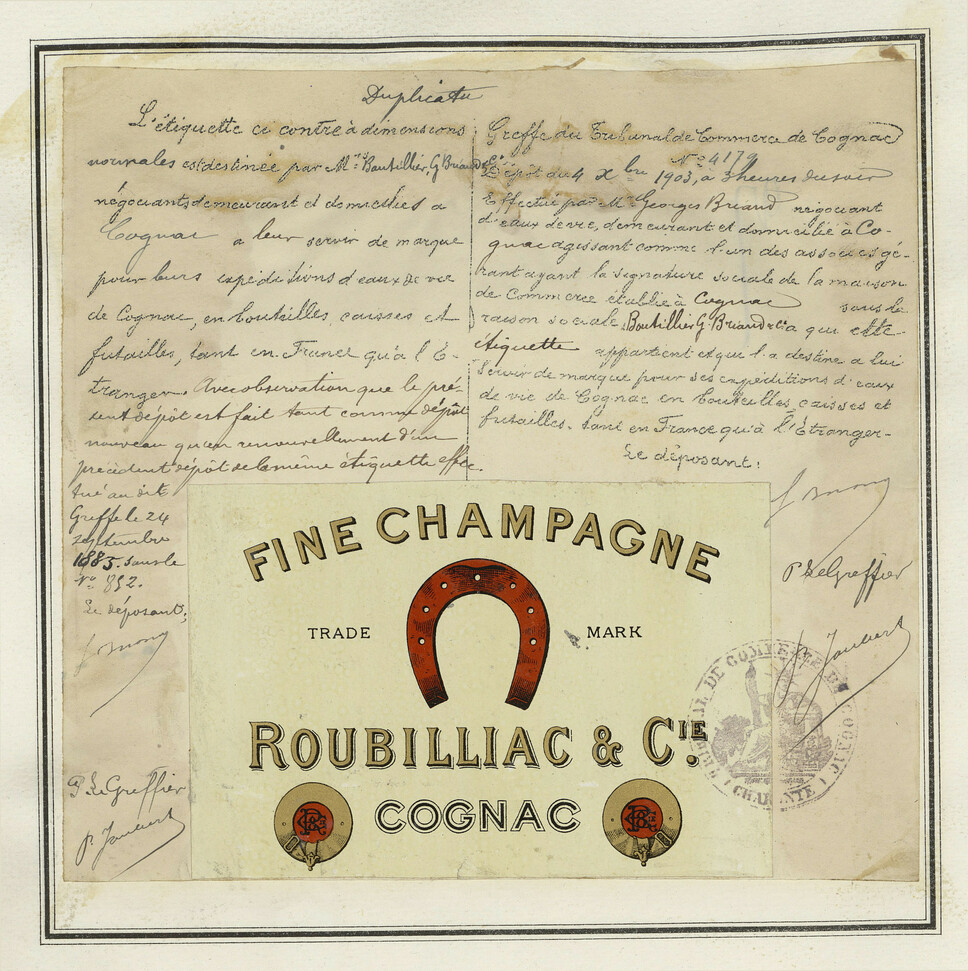 Duplicata
L'étiquette ci contre à dimensions
normales est destinée par Mrs Boutillier, G. Briand & Cie
négociants demeurant et domiciliés à
Cognac à leur servir de marque
pour leurs expéditions d'eaux de vie
de Cognac, en bouteilles, caisses et
futailles, tant en France qu'à l'É-
tranger. Avec observation que le pré-
sent dépôt est fait tant comme dépôt
nouveau qu'en renouvellement d'un
précédent dépôt de la même étiquette effec-
tué au dit
Greffe le 24
septembre
1885. sous le
No 852.
Le déposant;
P. Le Greffier
P. Joubert
Greffe du Tribunal de Commerce de Cognac
No 4179
Dépôt du 4 Xbre 1903, à 3 heures du soir
Effectué par Mr Georges Briand négociant
d'eaux de vie, demeurant et domicilié à Co-
gnac agissant comme l'un des associés gé-
rant ayant la signature sociale de la maison
de Commerce établie à Cognac sous la
raison sociale Boutillier G. Briand & Cie à qui cette
étiquette appartient et qui l'a destine à lui
servir de marque pour ses expéditions d'eaux
de vie de Cognac en bouteilles, caisses et
futailles. tant en France qu'à l'Étranger-
Le déposant:
P. Le Greffier
P. Joubert
FINE CHAMPAGNE
TRADE MARK
ROUBILLIAC & CIE
COGNAC
TRIBUNAL DE COMMERCE DE COGNAC
CHARENTE